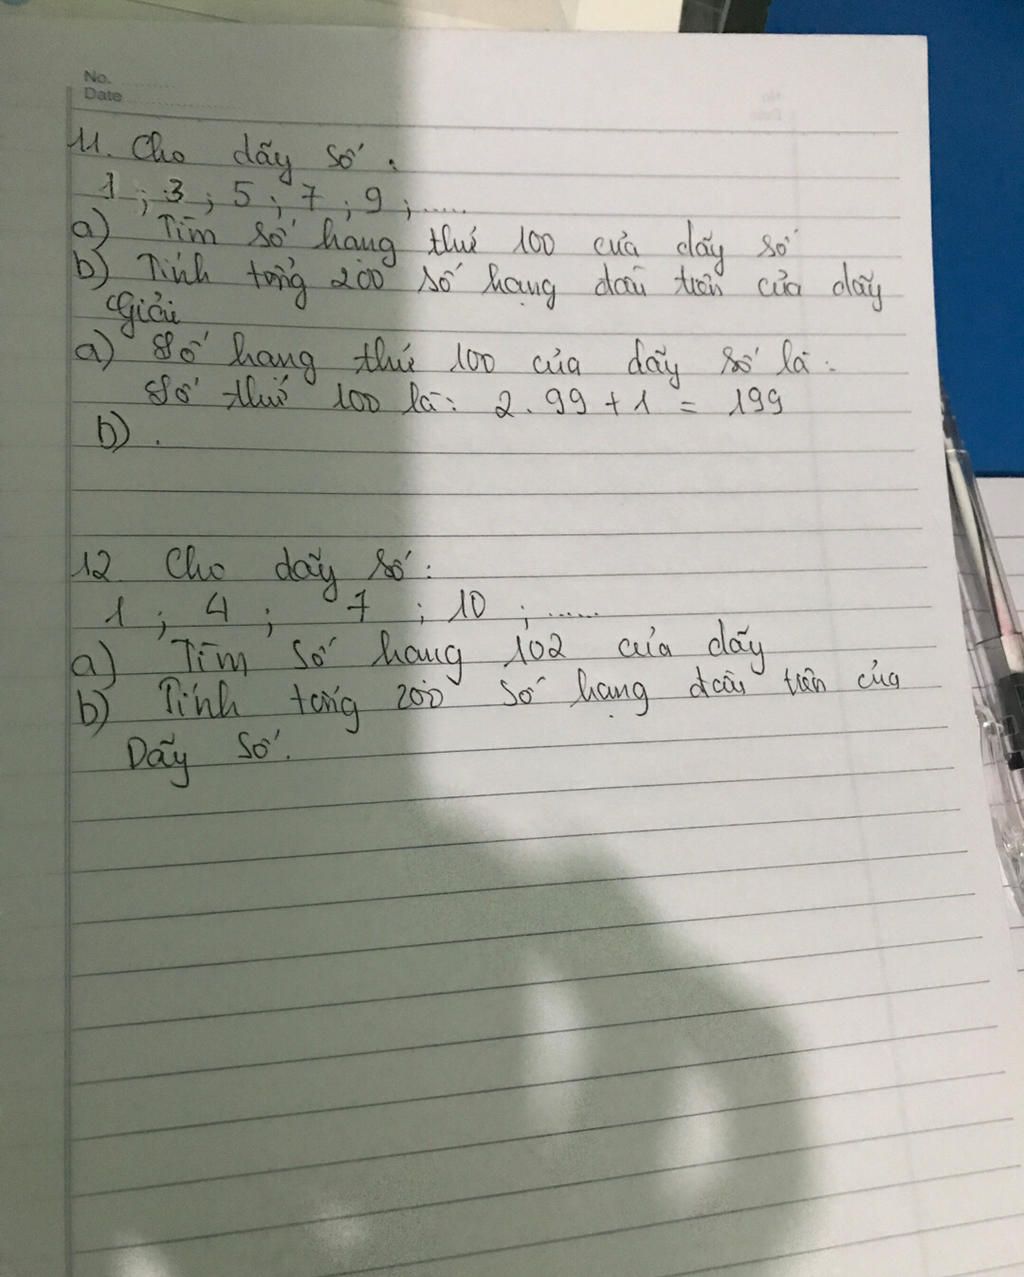 No.
Date
11. Cho dãy số :
1 ; 3 ; 5 ; 7 ; 9 ; .....
a) Tìm số hang thứ 100 của dãy số
b) Tính tổng 200 số hạng đầu tiên của dãy
Giải
a) Số hang thứ 100 của dãy số là :
Số thứ 100 là : 2 . 99 + 1 = 199
b) .
12 Cho dãy số :
1 ; 4 ; 7 ; 10 ; .....
a) Tìm số hang 102 của dãy
b) Tính tổng 200 số hạng đầu tiên của
Dãy số.